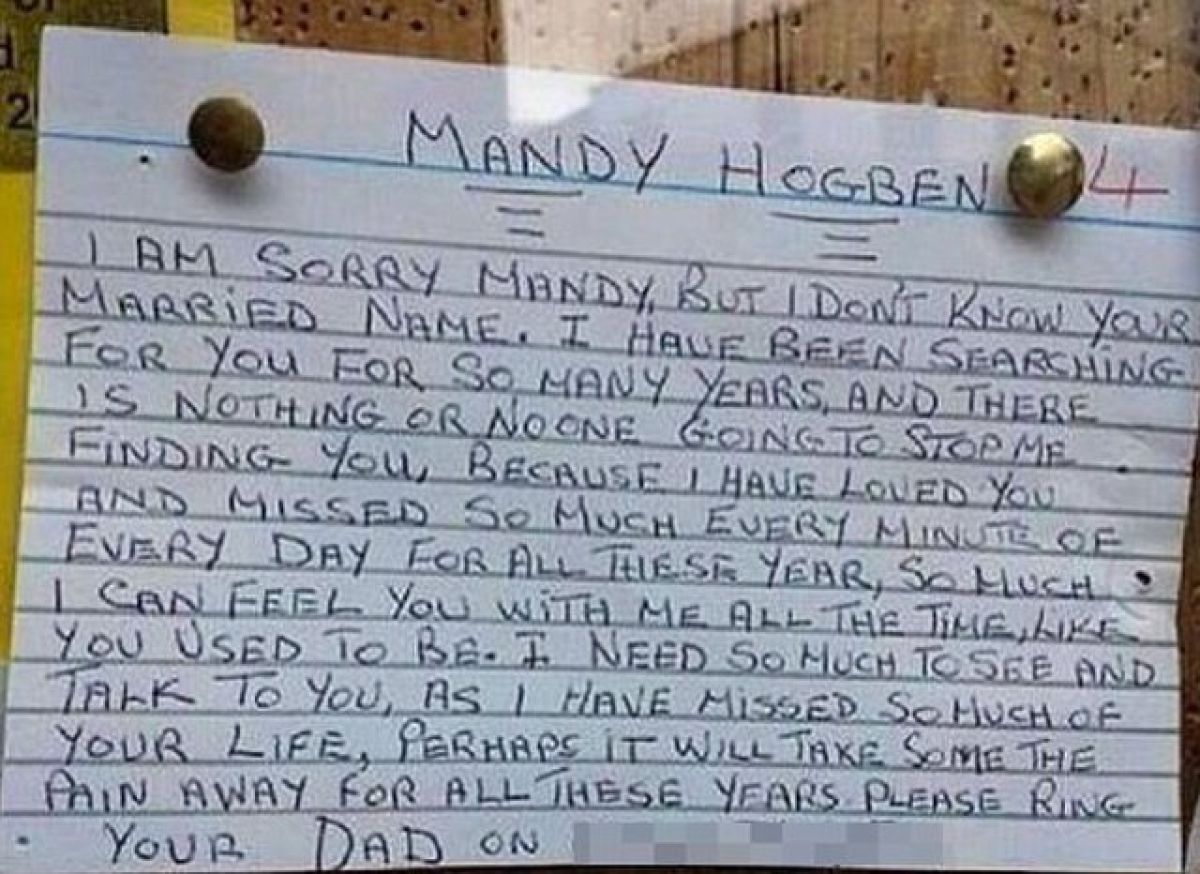 d
2
MANDY HOGBEN 4
I AM SORRY MANDY, BUT I DON'T KNOW YOUR
MARRIED NAME. I HAVE BEEN SEARCHING
FOR YOU FOR SO MANY YEARS, AND THERE
IS NOTHING OR NOONE GOING TO STOP ME
FINDING YOU, BECAUSE I HAVE LOVED YOU
AND MISSED SO MUCH EVERY MINUTE OF
EVERY DAY FOR ALL THESE YEAR, SO MUCH
I CAN FEEL YOU WITH ME ALL THE TIME, LIKE
YOU USED TO BE. I NEED SO MUCH TO SEE AND
TALK TO YOU, AS I HAVE MISSED SO MUCH OF
YOUR LIFE, PERHAPS IT WILL TAKE SOME THE
PAIN AWAY FOR ALL THESE YEARS PLEASE RING
YOUR DAD ON